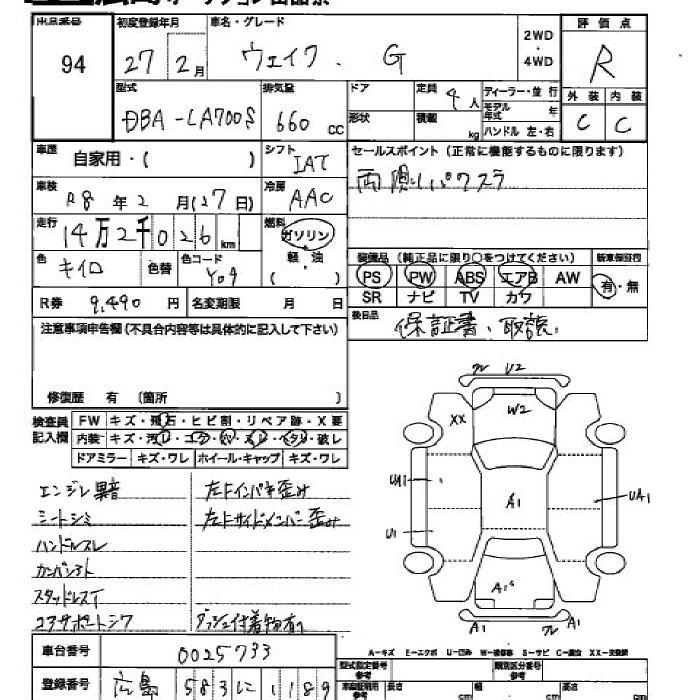 出品番号 94
初度登録年月 27 2月
車名・グレード ウェイク . G
2WD ・ 4WD
評価点 R
外装 C 内装 C
型式 DBA-LA700S
排気量 660 cc
ドア 形状
定員 4人 積載 kg
ディーラー・並行
モデル年式 年
ハンドル 左・右
車歴 自家用・( )
シフト IAT
セールスポイント(正常に機能するものに限ります)
両側パワスラ
車検 R8年2月(27日)
冷房 AAC
走行 14万2千026km
燃料 ガソリン 軽・油 ( )
色 キイロ 色替 色コード Y09
装備品(純正品に限り○をつけてください) 新車保証書
PS PW ABS エアB AW 有・無
SR ナビ TV カワ
R券 9,490円 名変期限 月 日
後日品 保証書、取説
注意事項申告欄(不具合内容等は具体的に記入して下さい)
修復歴 有 (箇所 )
検査員記入欄
FW キズ・飛石・ヒビ割・リペア跡・X要
内装 キズ・汚レ・コゲ・穴・スレ・ヘタリ・破レ
ドアミラー キズ・ワレ ホイール・キャップ キズ・ワレ
エンジン異音 左フインパネ歪み
シートシミ 左フサイドメンバー歪み
ハンドルスレ
スタッドレス
コアサポートシワ ダッシュ付着物有り
U2
W2
XX
UA1
A1
UA1
U1
A1
A1
A1
A-キズ E-エクボ U-凹み W-補修跡 S-サビ C-腐食 XX-交換済
車台番号 0025733
型式指定番号 類別区分番号
登録番号 広島 583 に 1189
長さ cm 幅 cm 高さ cm